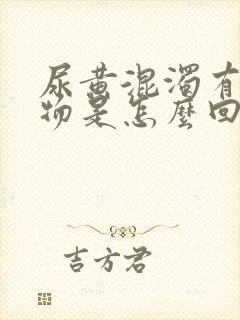 尿黄混濁有
物是怎麼回
吉方君